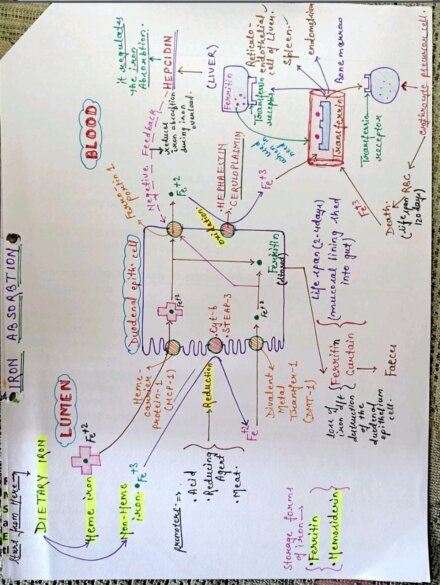 IRON ABSORBTION
Start from Here
DIETARY IRON
Heme iron
Fe+2
Non-Heme
iron • Fe+3
LUMEN
Duodenal epith cell
BLOOD
Heme-
carrier
protein-1
(HCP-1)
Fe+2
Reduction
promoters
• Acid
• Reducing
Agent
• Meat.
Cyt-b
STEAP-3
Fe+2
Fe+2
Divalent
Metal
Transfer-1
(DMT-1)
Ferritin
(stored)
Ferroportin 1
Fe+2
oxidation
HEPHAESTIN
CERULOPLASMIN
Fe+3
Negative Feedback
HEPCIDIN
it regulates
the iron
Absorbtion.
reduce
iron absorbtion
during iron
overload.
(LIVER)
Ferritin
Transferrin
receptor
Reticulo-
endothelial
cell of Liver.
Spleen.
endometrium
Bonemarrow
Transferrin
Transferrin
receptor
erythrocyte precursor cell.
Fe+3
Death
(Life span RBC
120 days)
Life span (2-4 days)
(mucosal lining shed
into gut)
Ferritin
Curtain
Faeces
loss of
iron d/t
destruction
of the
duodenal
epithelium
cell.
Storage forms
of iron
Ferritin
Hemosiderin